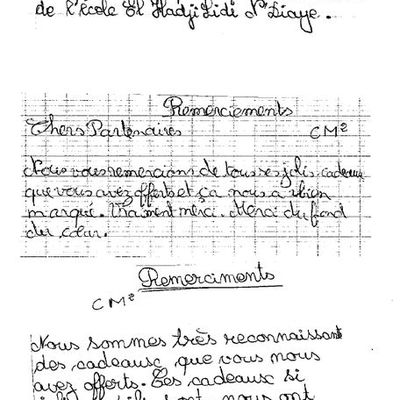 de l'école El Hadji Lidi N'Diaye.
Remerciements
Chers Partenaires CM2
Nous vous remercions de tous ses jolis cadeaux
que vous avez offerts et ça nous a bien
marqué. Vraiment merci. Merci du fond
du cœur.
Remerciments
CM2
Nous sommes très reconnaissant
des cadeaux que vous nous
avez offerts. Ces cadeaux si
nous ont